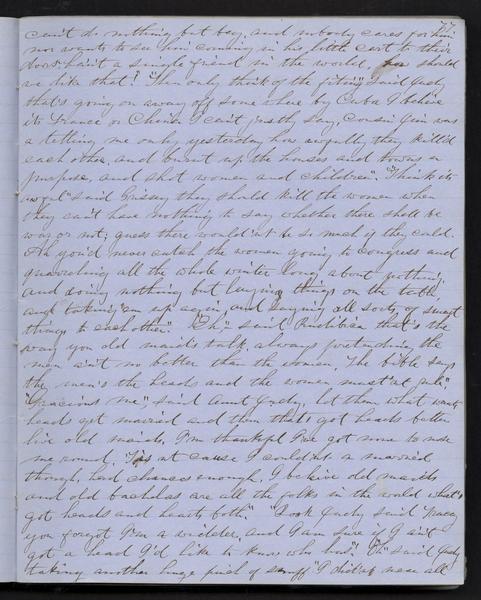 77
can't do nothing but beg, and nobody cares for him
nor wants to see him coming in his little cart to their
doors hain't a single friend in the world, how should
we like that? "Then only think of the fiting" said Judy
that's going on away off some where by Cuba I believe
its France or China I can't justly say, Cousin Jim was
a telling me only yesterday how awfully they kill'd
each other, and burnt up the houses and towns a
purpose, and shot women and children". "Think its
awful" said Grissey they should kill the women when
they can't have nothing to say whether there shall be
war or not; guess there would'nt be so much if they could.
Ah you'd never catch the women going to congress and
quarreling all the whole winter long about nothing,
and doing nothing but laying things on the table,
and taking 'em up again, and saying all sorts of smart
things to each other". "Eh," said "that's the
way you old maids talk, always pretending the
men ain't no better than the women, The bible says
the men's the heads and the women must'nt rule,"
"Gracious me", said Aunt Judy, let them what wants
heads get married and them that's got heads better
live old maids, I'm thankful I've got none to nose
me round, 'Tis nt cause I could'nt a married
though, had chances enough, I believe old maids
and old bachelors are all the folks in the world what's
got heads and hearts both." "Look Judy said
you forgot I'm a widder, and I am sure if I ain't
got a head I'd like to know who has", "Eh" said Judy
taking another huge pinch of snuff "I did'nt mean all